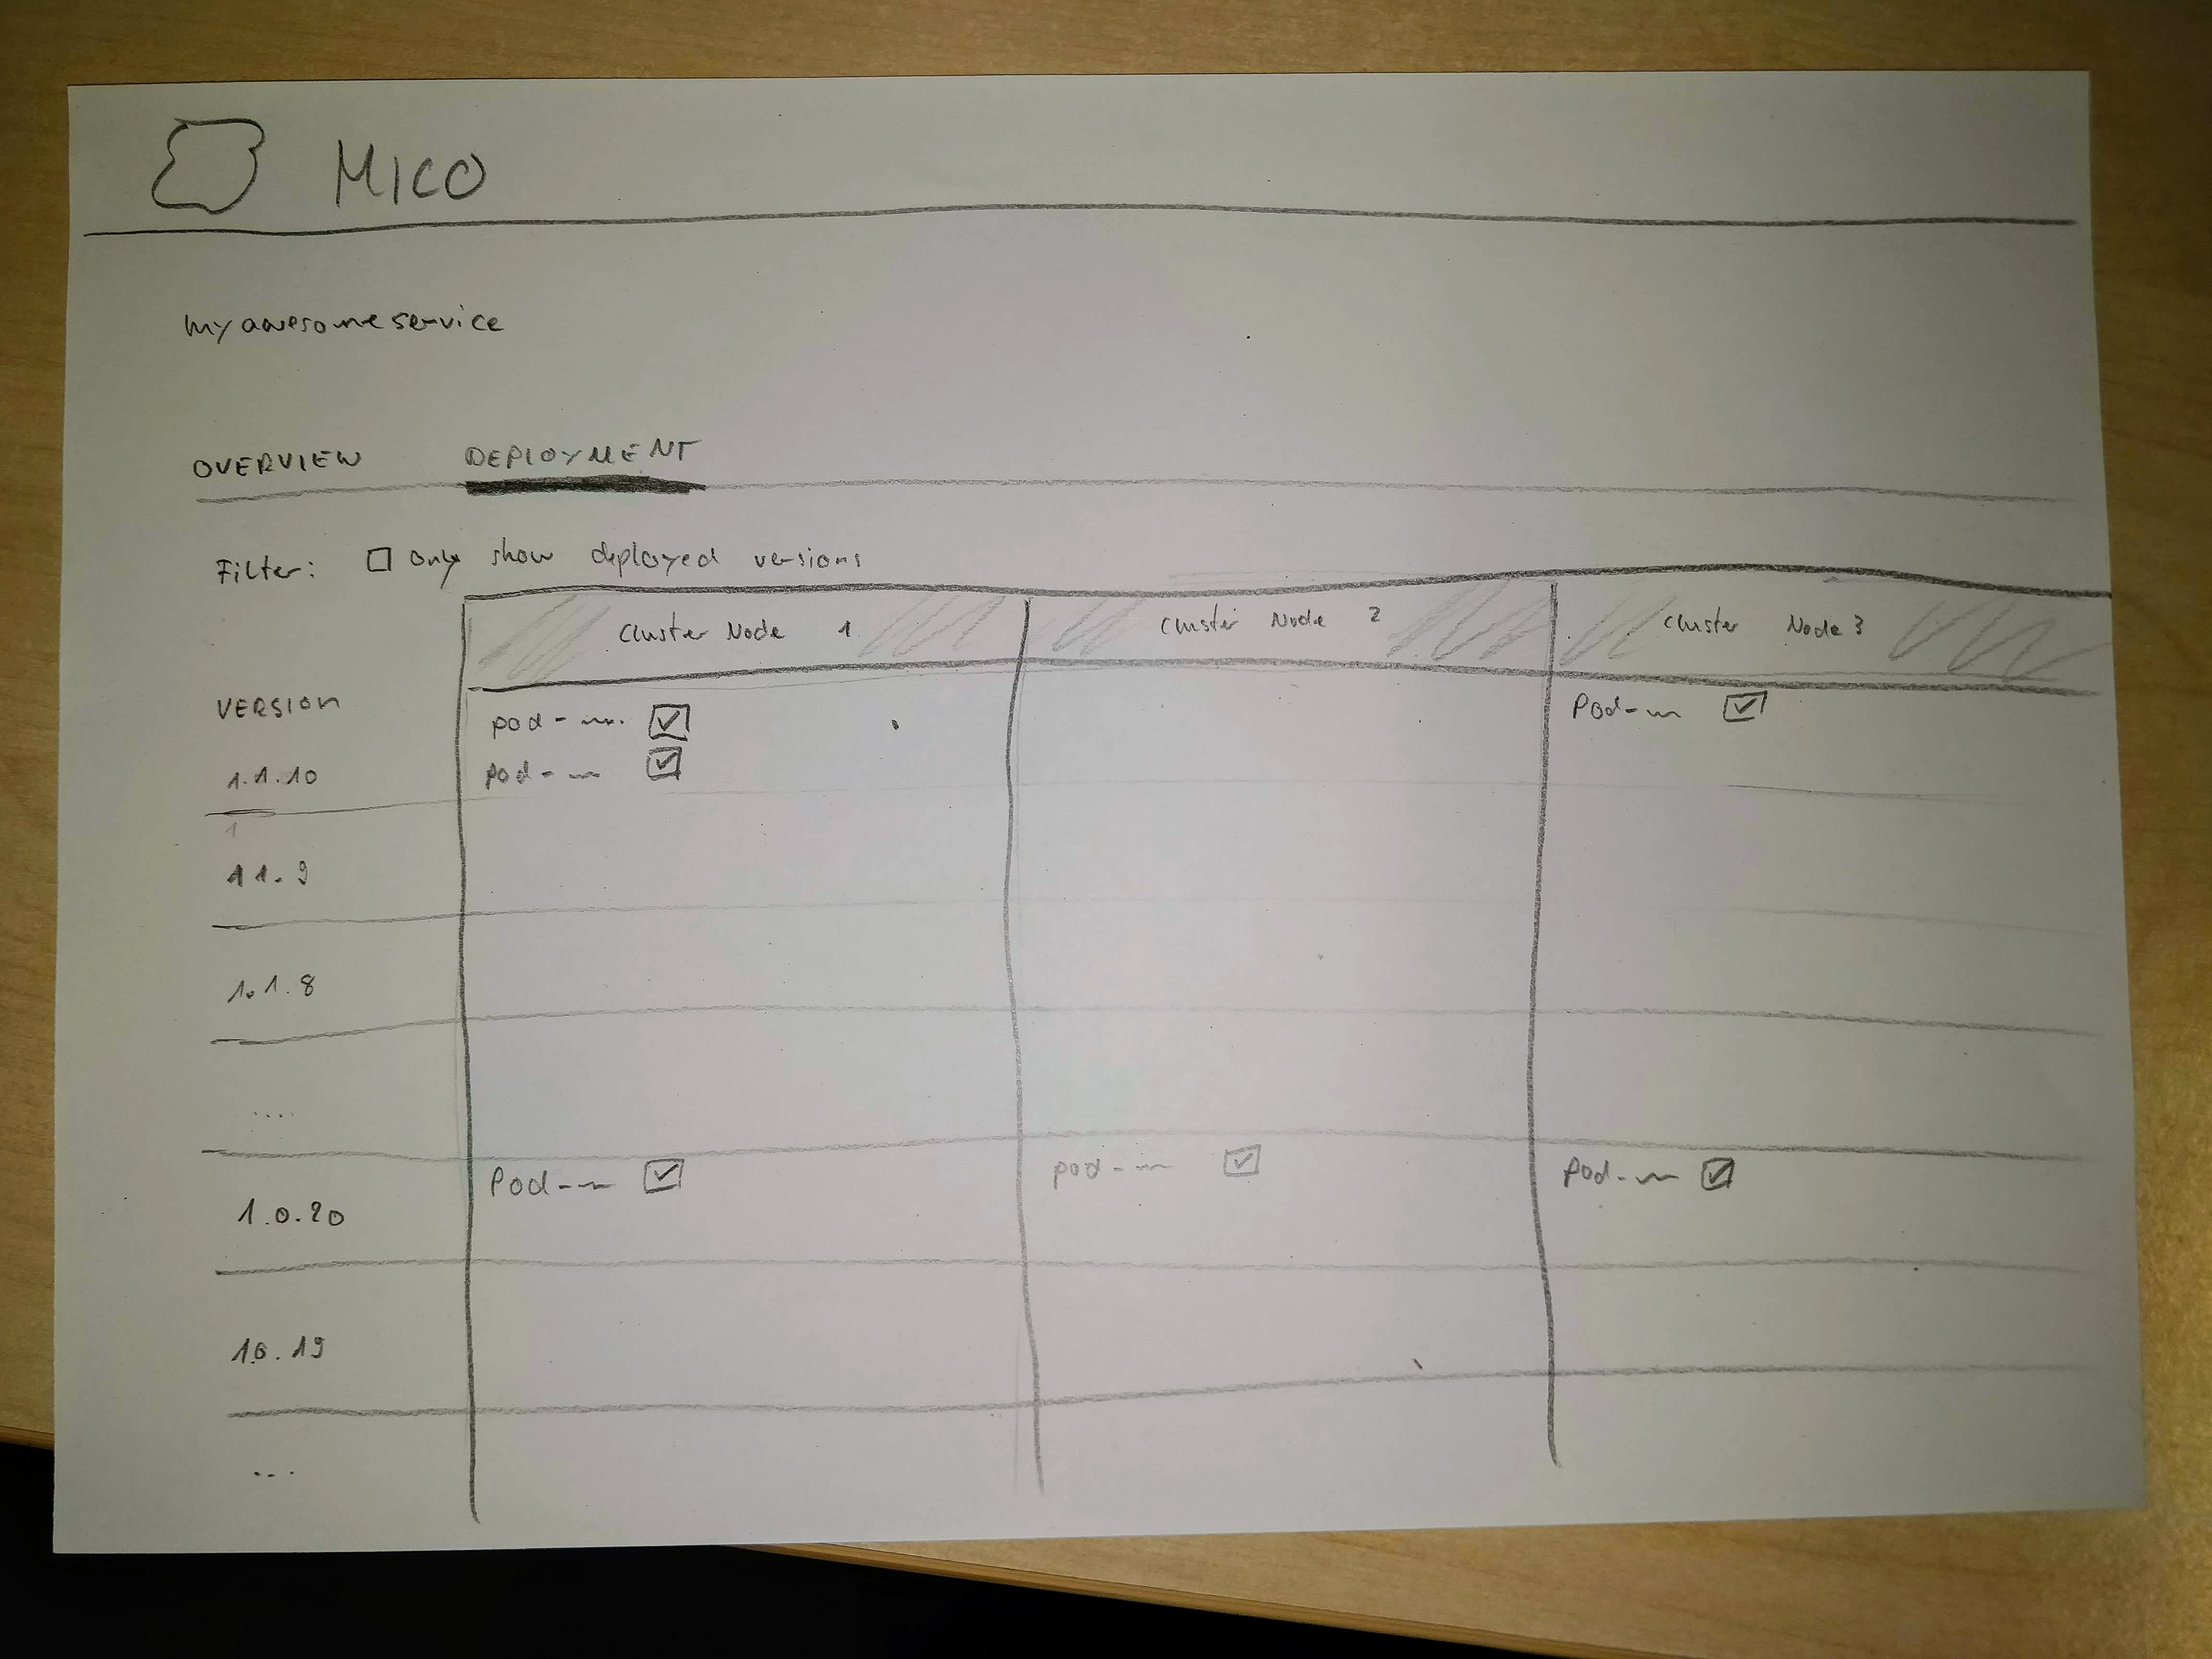 MICO
my awesome service
OVERVIEW DEPLOYMENT
Filter: only show deployed versions
Cluster Node 1 Cluster Node 2 Cluster Node 3
VERSION
pod - Pod-
pod -
1.1.10
1
11.9
1.1.8
....
Pod-- pod-- Pod--
1.0.20
1.0.19
...